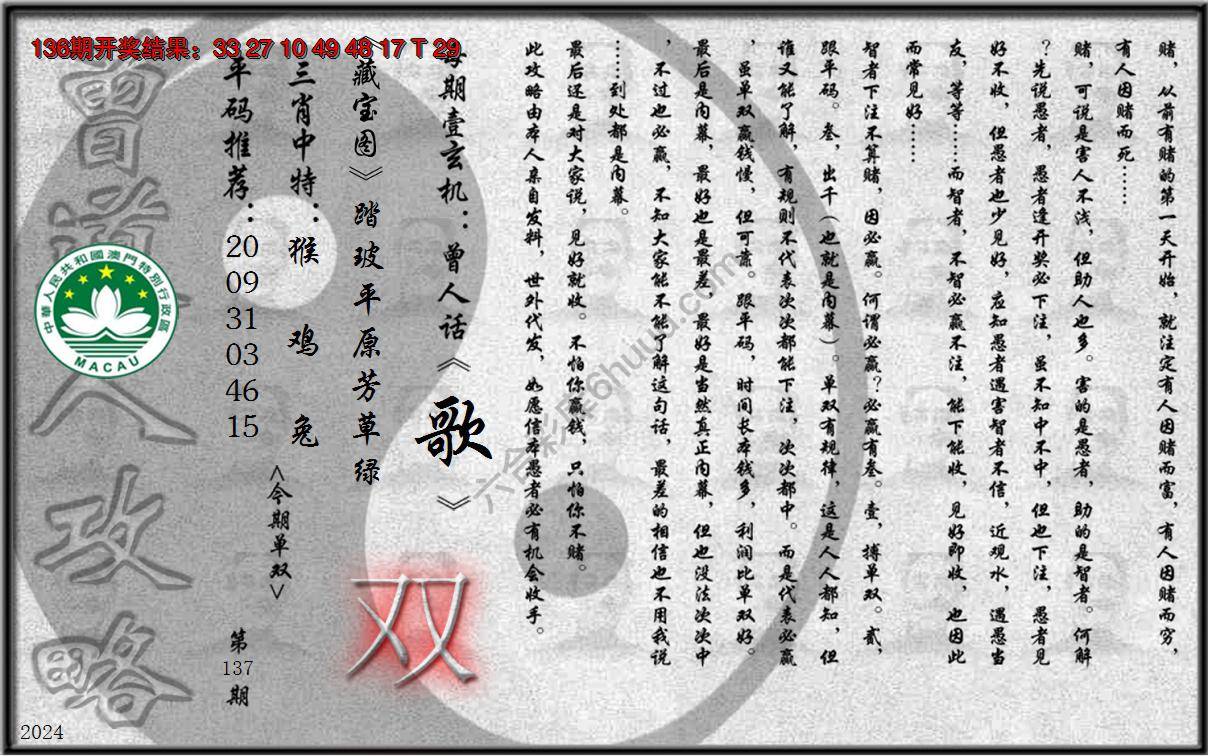 136期开奖结果：33 27 10 49 48 17 T 29
赌，从前有赌的第一天开始，就注定有人因赌而富，有人因赌而穷，
有人因赌而死……
赌，可说是害人不浅，但助人也多。害的是愚者，助的是智者。何解
？先说愚者，愚者逢开奖必下注，虽不知中不中，但也下注，愚者见
好不收，但愚者也少见好，应知愚者遇害智者不信，近观水，遇愚当
友，等等……而智者，不智必赢不注，能下能收，见好即收，也因此
而常见好……
智者下注不算赌，因必赢。何谓必赢？必赢有叁。壹，搏单双。贰，
跟平码。叁，出千（也就是内幕）。单双有规律，这是人人都知，但
谁又能了解，有规则不代表次次都能下注，次次都中。而是代表必赢
，虽单双赢钱慢，但可靠。跟平码，时间长本钱多，利润比单双好。
最后是内幕，最好也是最差，最好是当然真正内幕，但也没法次次中
，不过也必赢，不知大家能不能了解这句话，最差的相信也不用我说
……到处都是内幕。
最后还是对大家说，见好就收。不怕你赢钱，只怕你不赌。
此攻略由本人亲自发料，世外代发，如愿信本愚者必有机会收手。
每期壹玄机：曾人话《歌》
《藏宝图》踏玻平原芳草绿
双
三肖中特：猴 鸡 兔
<今期单双>
平码推荐：20 09 31 03 46 15
第137期
曾道人攻略
中華人民共和國澳門特別行政區
MACAU
2024